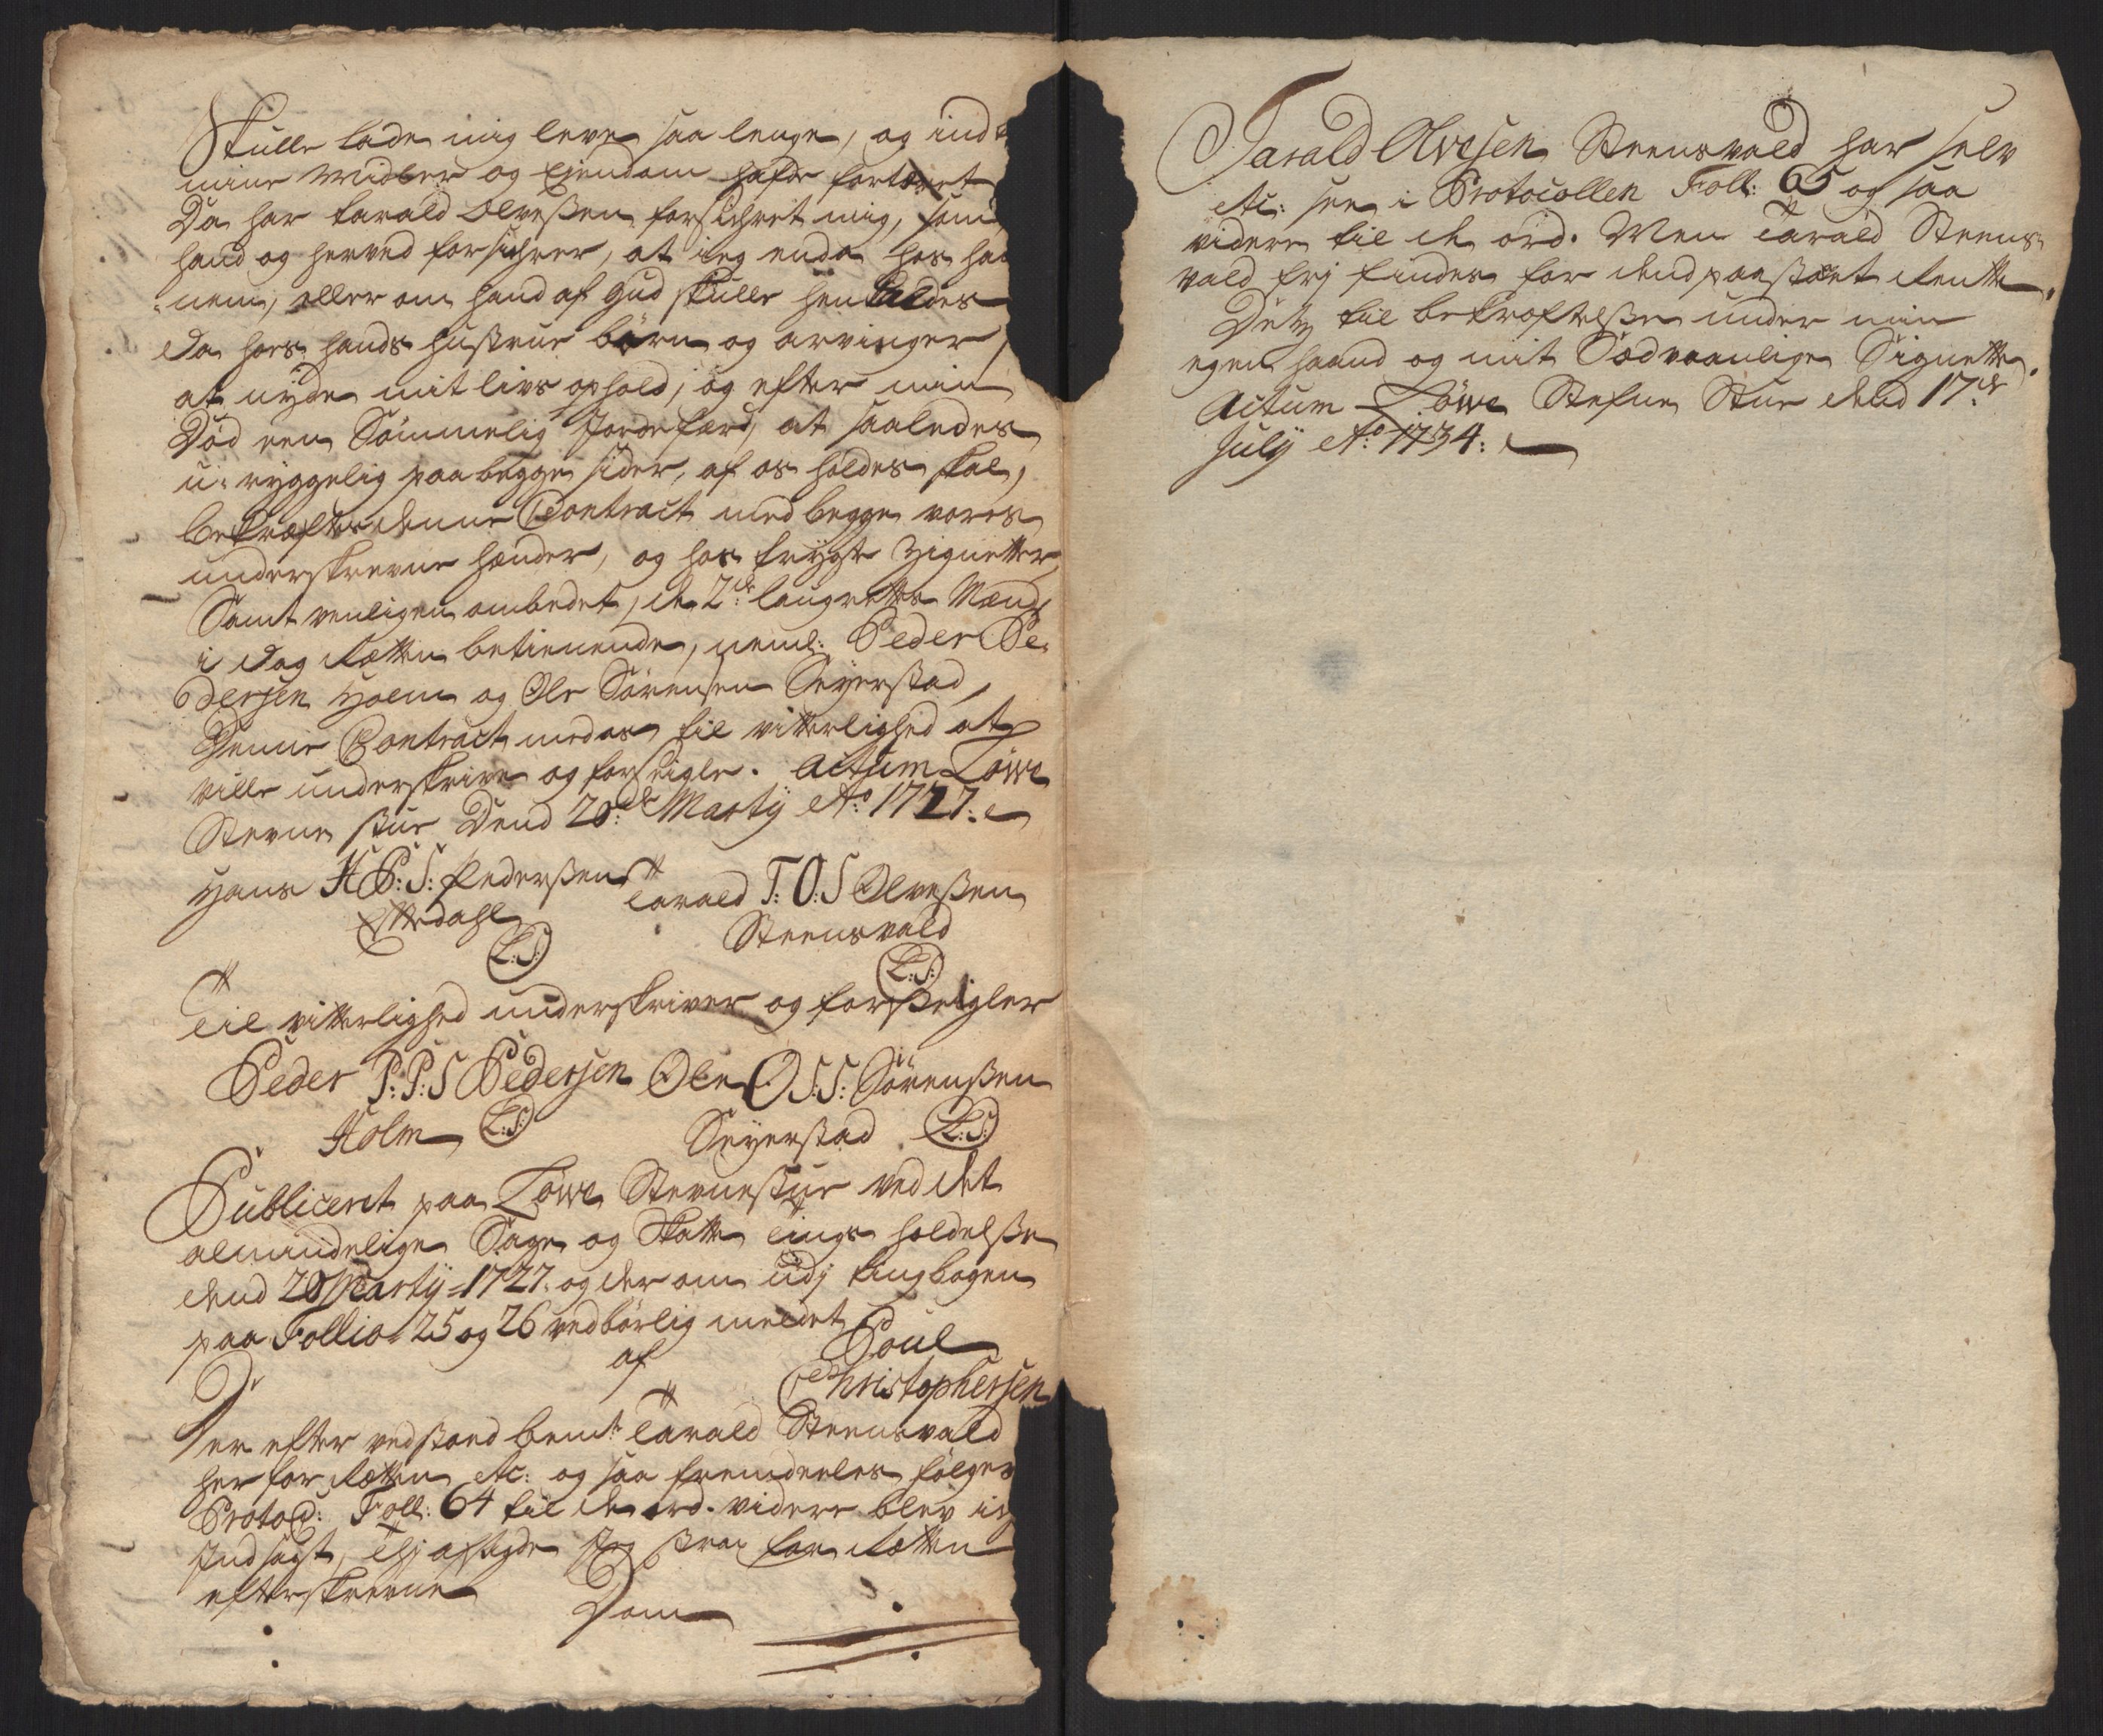 Skulle lade mig leve saa lenge, og ind
mine Midler og Ejendom hafde fortæret
Da har Tarald Olveßen forsichret mig, som
hand og herved forsichrer, at ieg enda hos ha
nem, eller om hand af Gud skulle henkaldes
da hoes hands hustrue børn og arvinger,
at nyde mit livs ophold, og efter min
Død een Sømmelig Jordefærd, at saaledes
u-ryggelig paa begge sider, af os holdes skal,
bekræftes denne Contract med begge vores
underskrevne hænder, og hos trøgte Zignetter
Samt venligen ombedet, de 2de laugrettes Mænd
i Dag Retten betienende, neml: Peder Pe-
dersen Holm og Ole Sørensen Seyerstad,
Denne Contract med os til vitterlighed at
ville underskrive og forseigle. Actum Löwe
Stevne stue Dend 20de Marty Ao 1727.
Hans H.P:S: Pederßen Tarald T:O:S Olveßen
Ytterdahl
Steensvald
L:S: L:S:
Til vitterlighed underskriver og forseigler
Peder P:P:S Pedersen Ole O.S:S: Sørenßen
Holm L:S: Seyerstad L:S:
Publiceret paa Löwe Stevnestue ved det
almindelige Sage og Skatte tings holdelße
dend 20 Marty 1727. og der om udj tingbogen
paa Follio 25 og 26 vedbørlig meldet
af Poul
Christophersen
Der efter vedstoed bemte Tarald Steensvald
her for Retten etc: og saa fremdeeles følger
Protoc: Foll: 64 til de ord. videre blev ej
Indsagt, thj afsagde Jeg strax for Retten
efterskrevne
Dom
Tarald Olvesen Steensvald har selv
etc: see i Protocollen Foll: 65 og saa
videre til de ord. Men Tarald Steens-
vald frj findes for dend paastaaet Rentte.
Detz til bekræftelße under min
egen haand og mit Sædvaanlige Signette.
Actum Löwe Stefne Stue dend 17de
July Ao 1734.